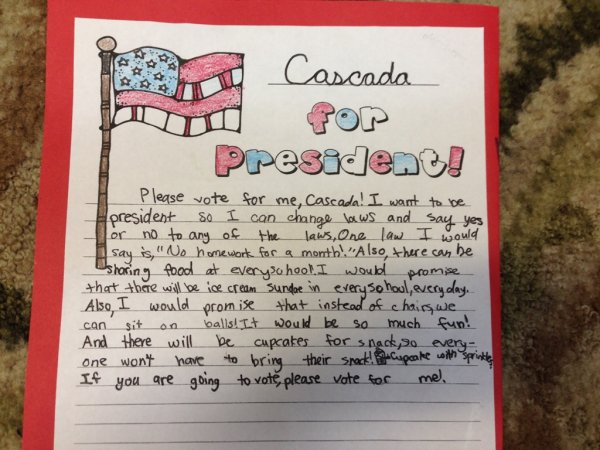 Cascada
for
President!
Please vote for me, Cascada! I want to be
president so I can change laws and say yes
or no to any of the laws. One law I would
say is, "No homework for a month!." Also, there can be
sharing food at every school. I would promise
that there will be ice cream sundae in every school, every day.
Also, I would promise that instead of chairs, we
can sit on balls! It would be so much fun!
And there will be cupcakes for snack, so every-
one won't have to bring their snack! Cupcake with sprinkles
If you are going to vote, please vote for me!